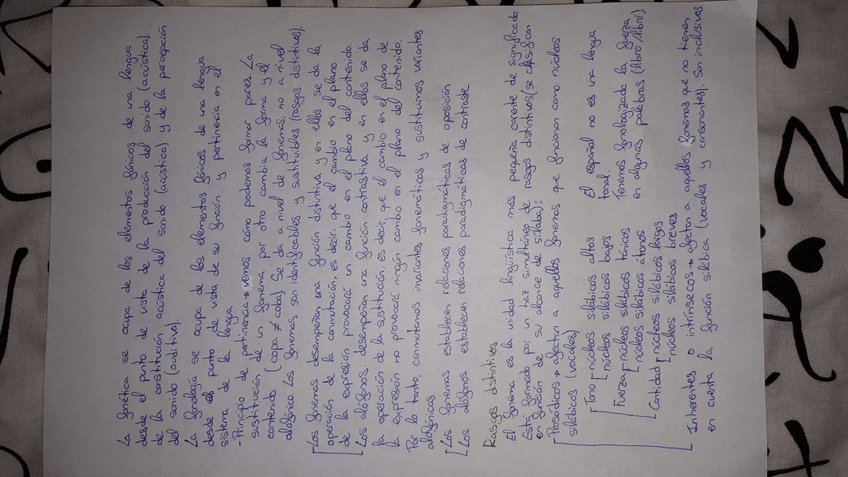 La fonética se ocupa de los elementos fónicos de una lengua
desde el punto de vista de la producción del sonido (acústica)
de la constitución acústica del sonido (acústica) y de la percepción
del sonido (auditiva).
La fonología se ocupa de los elementos fónicos de una lengua
desde el punto de vista de su función y pertinencia en el
sistema de la lengua.
- Principio de pertinencia → vemos cómo podemos formar pares. La
sustitución de un fonema por otro cambia la forma y el
contenido (copa ≠ coba). Se da a nivel de fonemas, no a nivel
alofónico. Los fonemas son identificables y sustituibles (rasgos distintivos).
Los fonemas desempeñan una función distintiva y en ellos se da la
operación de la conmutación, es decir, que el cambio en el plano
de la expresión provocará un cambio en el plano del contenido.
Los alófonos desempeñan una función contrastiva y en ellos se da
la operación de la sustitución, es decir, que el cambio en el plano de
la expresión no provocará ningún cambio en el plano del contenido.
Por lo tanto, conmutamos invariantes fonemáticas y sustituimos variantes
alofónicas.
Los fonemas establecen relaciones paradigmáticas de oposición
Los alófonos establecen relaciones paradigmáticas de contraste
Rasgos distintivos
El fonema es la unidad lingüística más pequeña carente de significado
Está formado por un haz simultáneo de rasgos distintivos (se clasifican
en función de su alcance de sílaba):
- Prosódicos → afectan a aquellos fonemas que funcionan como núcleos
silábicos (vocales)
Tono núcleos silábicos altos El español no es una lengua
núcleos silábicos bajos tonal.
Fuerza núcleos silábicos tónicos Tenemos fonologizada la fuerza
núcleos silábicos átonos en algunas palabras (libro/libró).
Cantidad núcleos silábicos largos
núcleos silábicos breves
- Inherentes o intrínsecos → afectan a aquellos fonemas que no tienen
en cuenta la función silábica (vocales y consonantes). Son inclusivos